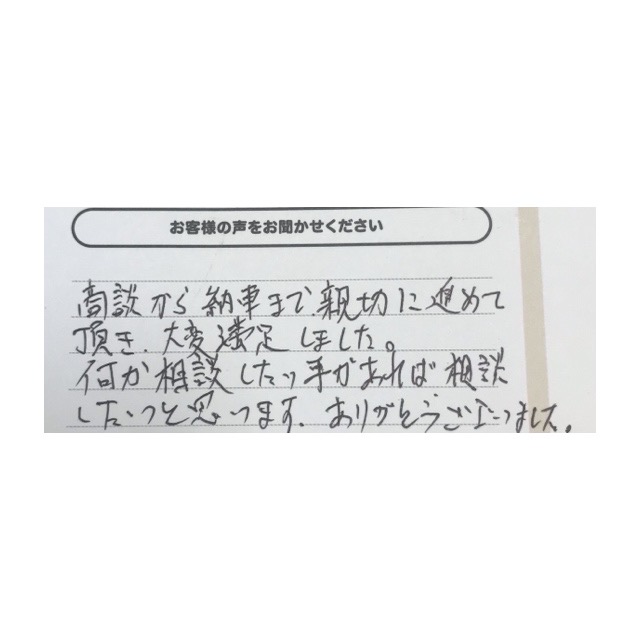 お客様の声をお聞かせください
商談から納車まで親切に進めて
頂き、大変満足しました。
何か相談したい事があれば相談
したいと思います。ありがとうございました。